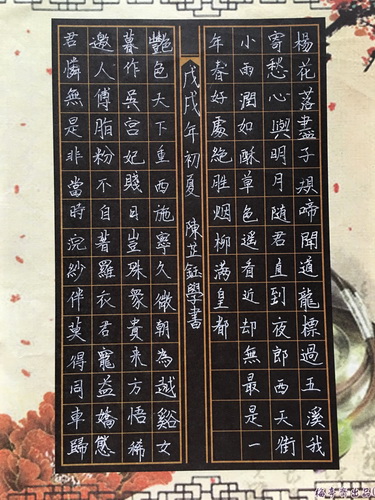 楊花落盡子規啼聞道龍標過五溪我
寄愁心與明月隨君直到夜郎西天街
小雨潤如酥草色遥看近却無最是一
年春好處絶勝烟柳滿皇都
戊戌年初夏 陳芷鈺學書
艷色天下重西施寧久微朝為越谿女
暮作吳宮妃賤日豈殊衆貴来方悟稀
邀人傅脂粉不自著羅衣君寵益嬌態
君憐無是非當時浣紗伴莫得同車歸